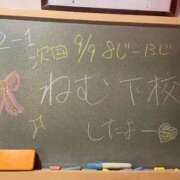 2-1
次回 9/9 8じ-13じ
ねむ下校
したよー